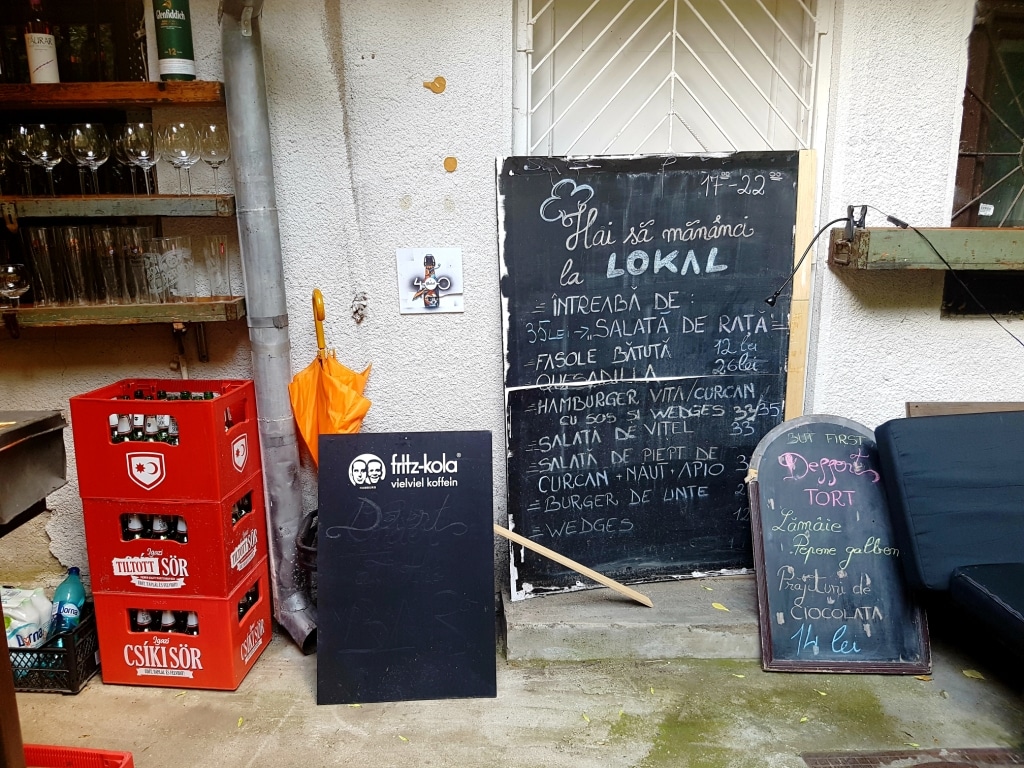 Glenfiddich
12
17⁰⁰-22⁰⁰
Hai să mănânci
la LOKAL
= ÎNTREABĂ DE :
35Lei → "SALATĂ DE RAȚĂ"
= FASOLE BĂTUTĂ 12 lei
QUESADILLA 26 lei
= HAMBURGER VITA/CURCAN
CU SOS ȘI WEDGES 33/35
= SALATĂ DE VIȚEL 33
= SALATĂ DE PIEPT DE
CURCAN + NAUT + APIO
= BURGER DE LINTE
= WEDGES
fritz-kola®
vielviel koffein
HAMBURG
Desert
BUT FIRST
Desserts
TORT
Lămâie
Pepene galben
Prăjituri de
CIOCOLATA
14 lei
Igazi
TILTOTT SÖR
Igazi
TILTOTT
Igazi
CSÍKI SÖR
CSÍKI SÖR
Dorna
Dorna